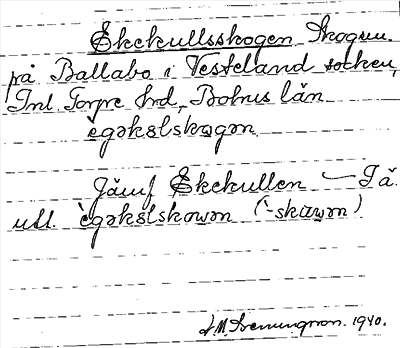 Ekekullsskogen Skogen.
på Ballabo i Vesteland socken,
Inl. Torpe hrd, Bohus län
ègəkəlskogən
Jämf Ekekullen — Tä.
utt. ègəkəlskowən (-skəwən)
1940.